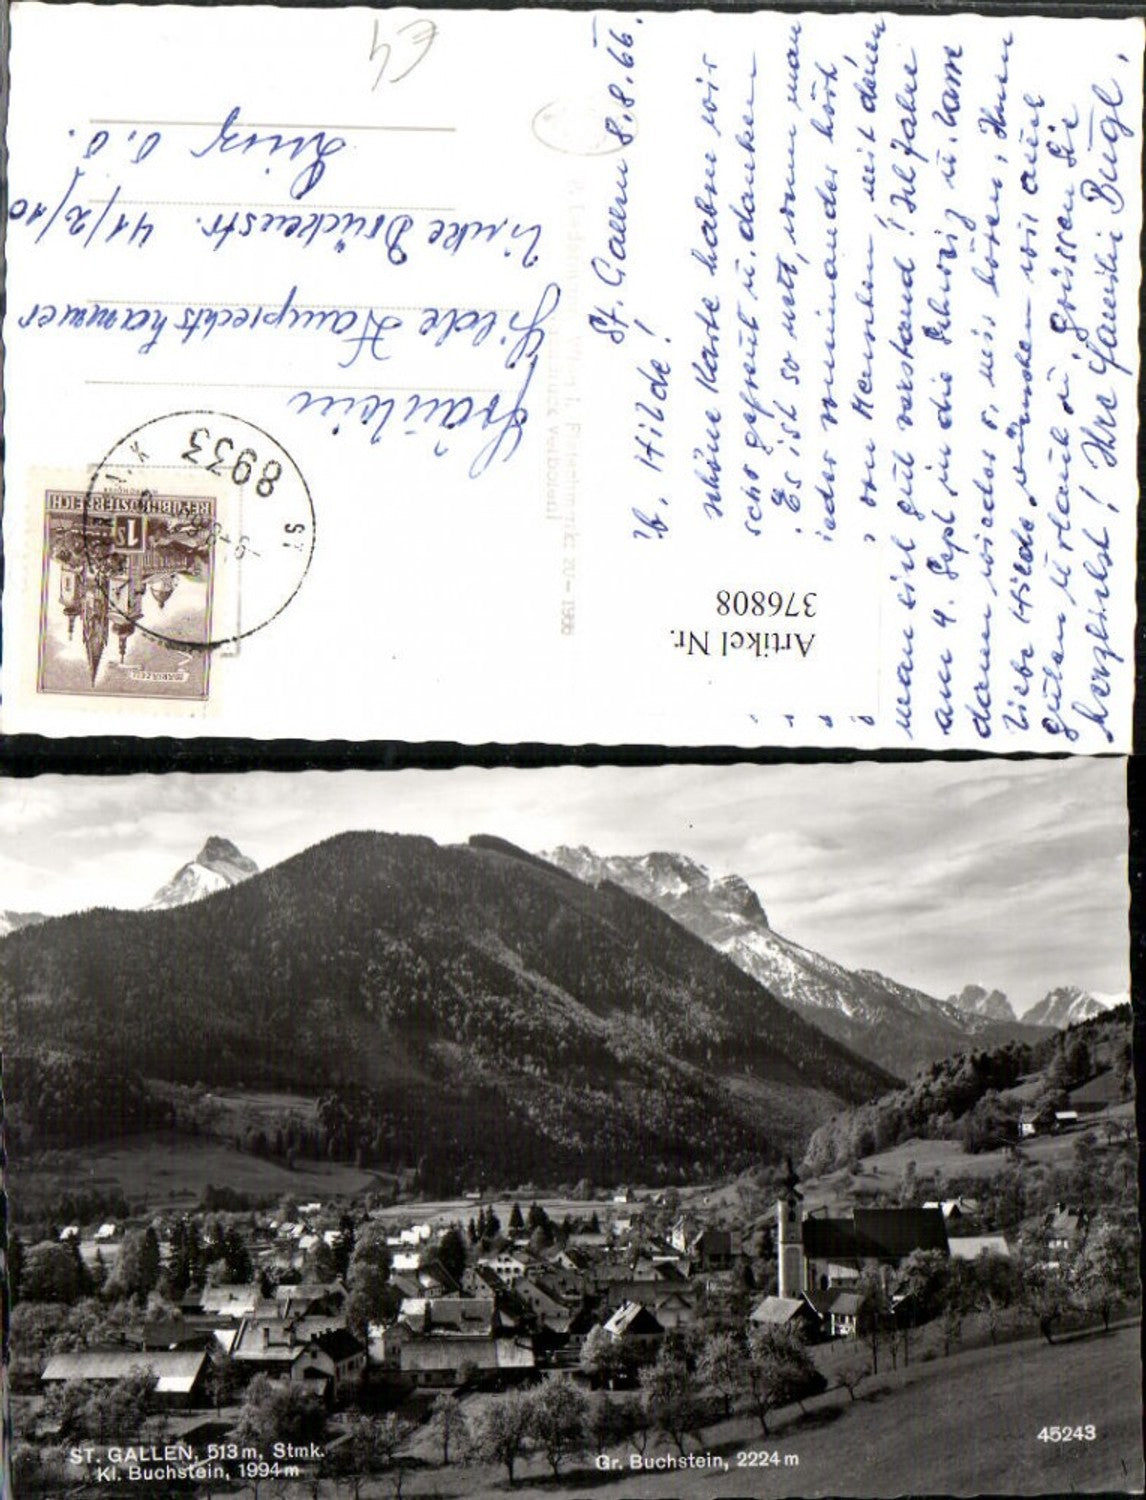 E4
Fräulein
Hilde Hauprechtshammer
Linke Brückenstr. 41/2/10
Linz O.Ö.
8933
ST.
REPUBLIK ÖSTERREICH
1S
MARIAZELL
Artikel Nr.
376808
St. Gallen 8.8.66.
Lb. Hilde!
schöne Karte haben wir
sehr gefreut u. danken
Es ist so nett, wenn man
wieder voneinander hört,
von Menschen, mit denen
man sich gut verstand! Ich fahre
am 4. Sept. in die Schweiz u. lasse
dann wieder v. mir hören. Ihnen
liebe Hilde wünschen wir auch
guten Urlaub u. grüssen Sie
herzlichst! Ihre Familie Bugl.
ST. GALLEN, 513 m, Stmk.
Kl. Buchstein, 1994 m
Gr. Buchstein, 2224 m
45243